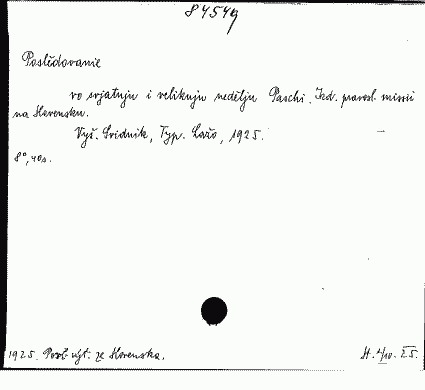 84549
Poslědovanie
vo svjatuju i velikuju nedělju Paschi. Izd. pravosl. missii
na Slovensku.
Vyš. Svidník, Typ. Lažo, 1925.
8°, 40 s.
1925. Pov. výt. ze Slovenska. H. 2/10. 25.